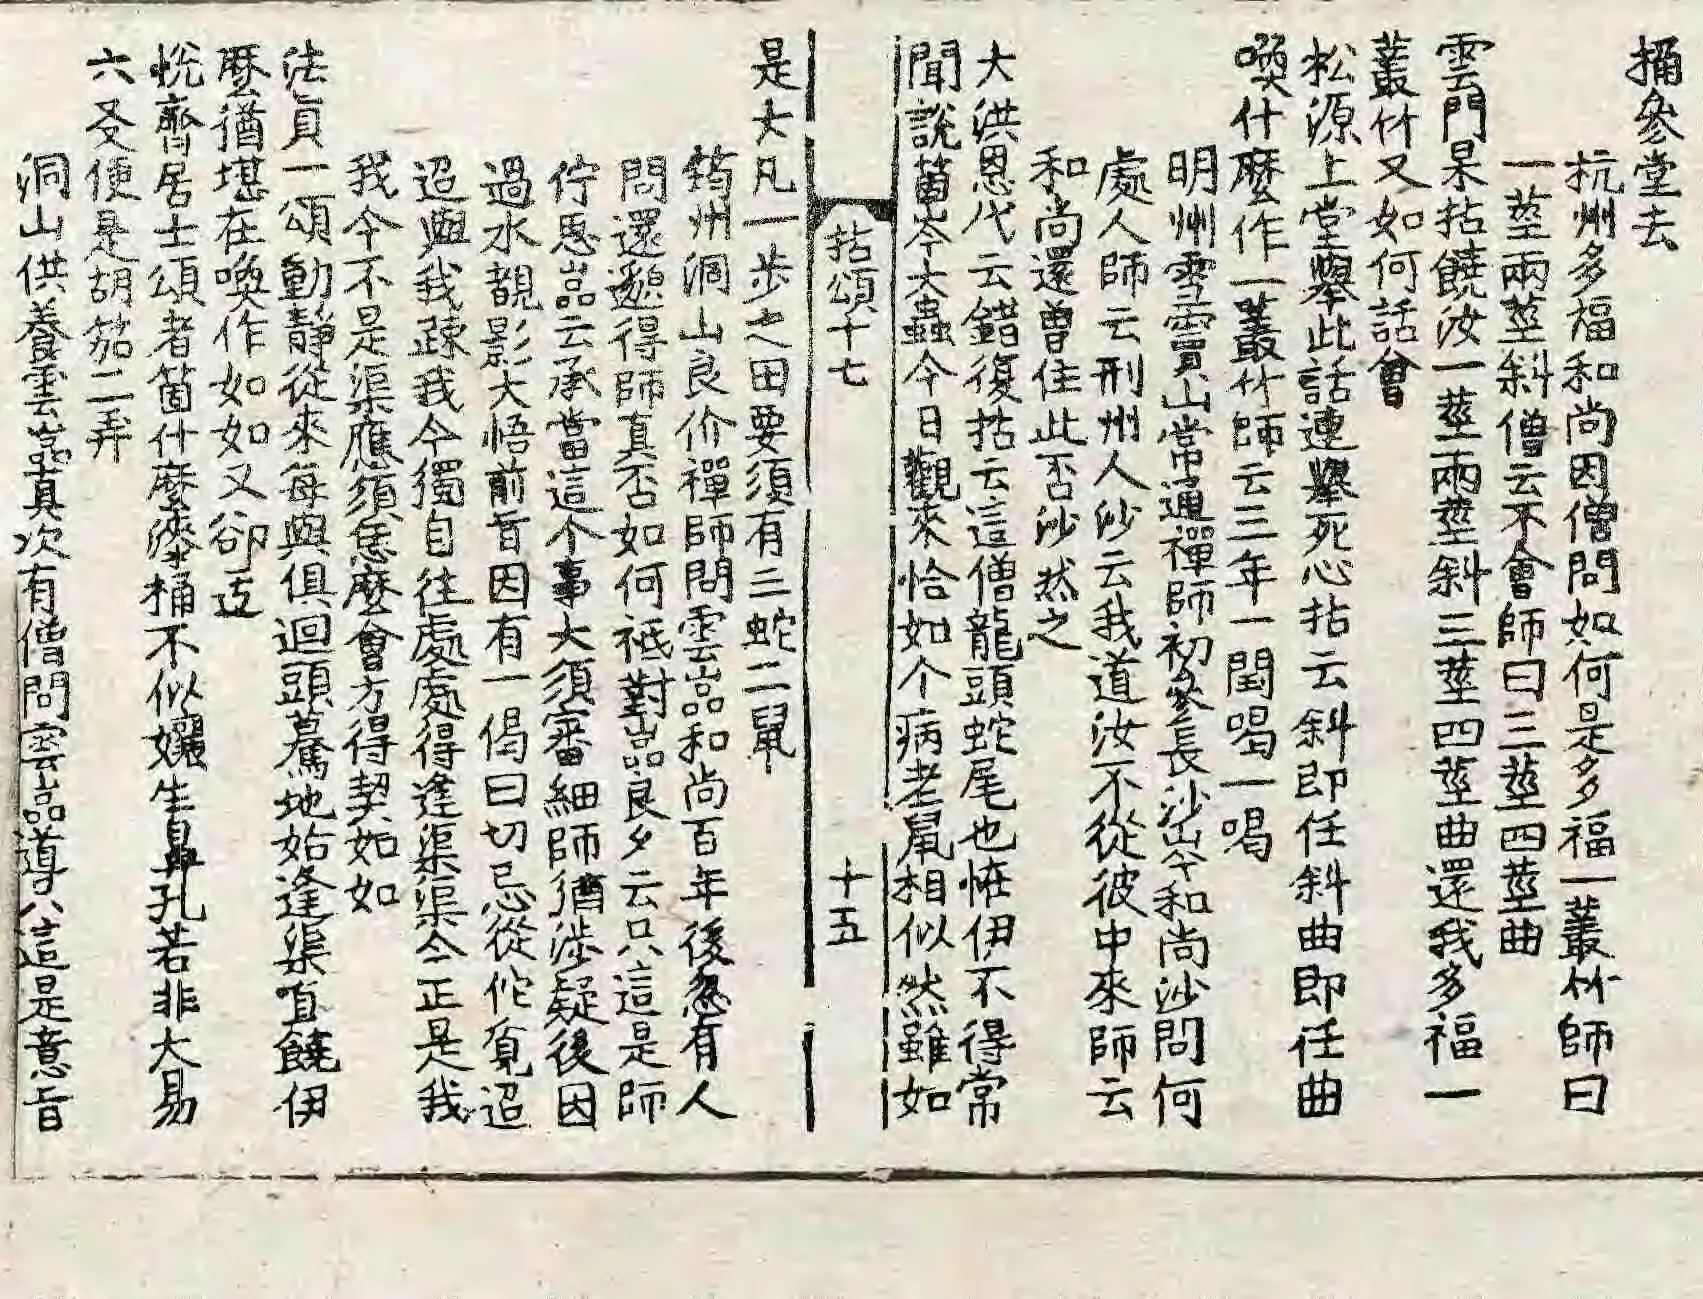 捅參堂去
杭州多福和尚因僧問如何是多福一叢竹師曰
一莖兩莖斜僧云不會師曰三莖四莖曲
雲門杲拈饒汝一莖兩莖斜三莖四莖曲還我多福一
叢竹又如何話會
松源上堂舉此話連舉死心拈云斜即任斜曲即任曲
喚什麼作一叢竹師云三年一閏喝一喝
明州雪竇山常通禪師初參長沙岑和尚沙問何
處人師云刑州人沙云我道汝不從彼中來師云
和尚還曾住此否沙然之
大洪恩代云錯復拈云這僧龍頭蛇尾也恠伊不得常
聞說箇岑大蟲今日觀來恰如个病老鼠相似然雖如
拈頌十七
十五
是大凡一步之田要須有三蛇二鼠
筠州洞山良价禪師問雲嵓和尚百年後忽有人
問還邈得師真否如何祗對嵓良夕云只這是師
佇思嵓云承當這个事大須審細師猶涉疑後因
過水覩影大悟前旨因有一偈曰切忌從佗覓迢
迢與我疎我今獨自往處處得逢渠渠今正是我
我今不是渠應須恁麼會方得契如如
法真一頌動靜從來每與俱迴頭驀地始逢渠直饒伊
麼猶堪在喚作如如又卻迂
悅齋居士頌者箇什麼漆桶不似孃生鼻孔若非大易
六爻便是胡笳二弄
洞山供養雲嵓真次有僧問雲嵓導只這是意旨